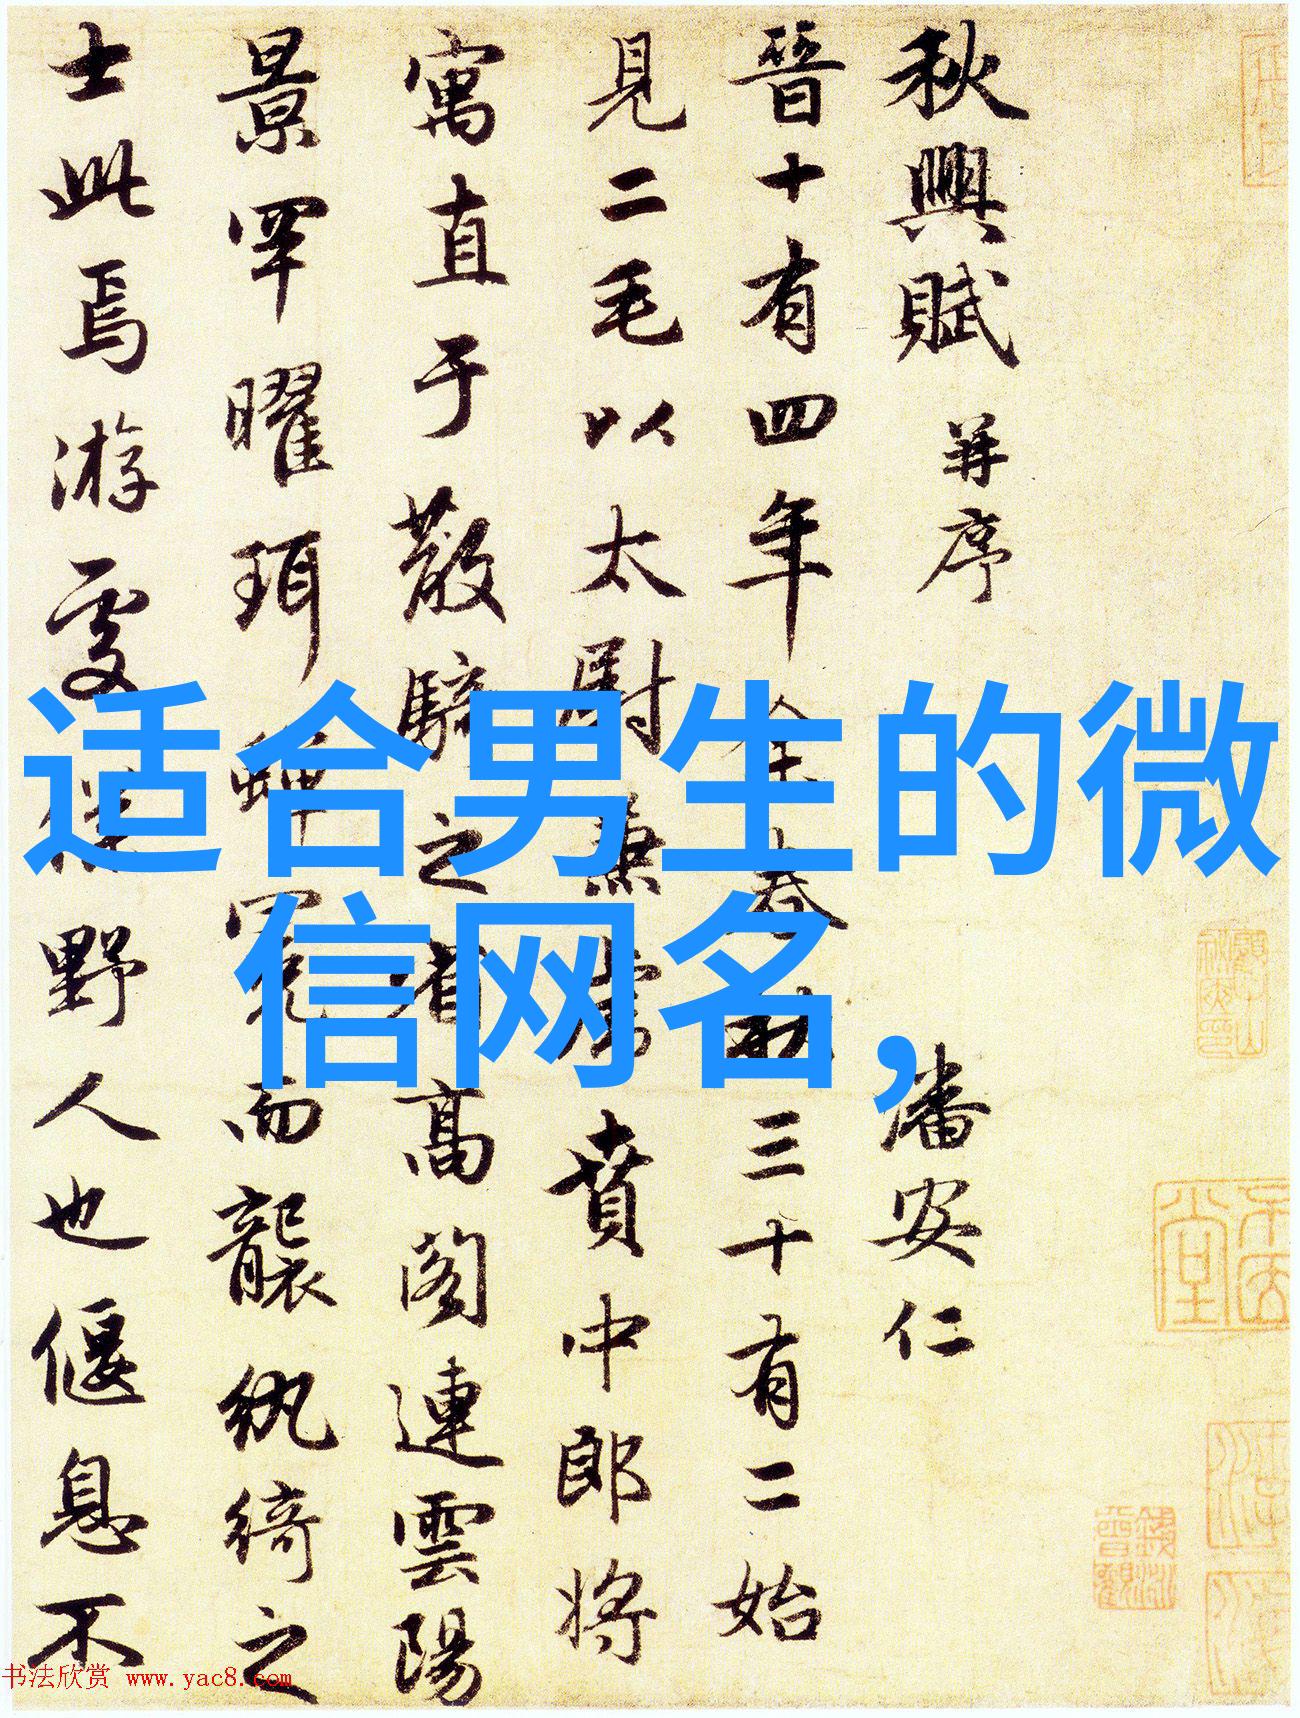 秋興賦 并序 潘安仁
晉十有四年余春秋三十有二始
見二毛以太尉兼虎賁中郎將
寓直于散騎之省高閣連雲陽
景罕曜珥蟬冕而襲紈綺之
士此焉游處僕野人也偃息不
适合男生的微
信网名，
书法欣赏 www.yac8.com